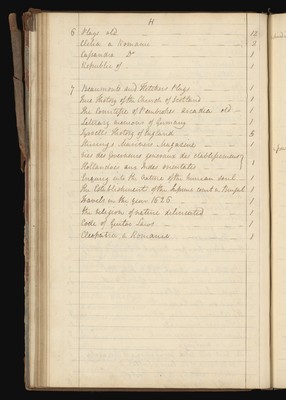 H
6 Plays old — — 12
Clelia a Romance — — 3
Cassandra Do — — 1
Republic of — — 1
7 Beaumonts and Fletchers Plays — 1
True History of the Church of Scotland — 1
The Countess of Pembrokes Arcadia old — 1
Literary memoirs of Germany — 1
Tyrrells History of England — 5
Theatre — Magazine — 1
Vies des Gouverneurs generaux des etablissemens
Hollandois aux Indes orientales — 1
Enquiry into the nature of the human soul — 1
The Establishment of the Supreme court in Bengal 1
Travels in the year 1626 — 1
The religion of nature delineated — 1
Code of Gentoo Laws — 1
Cleopatra a Romance — 1